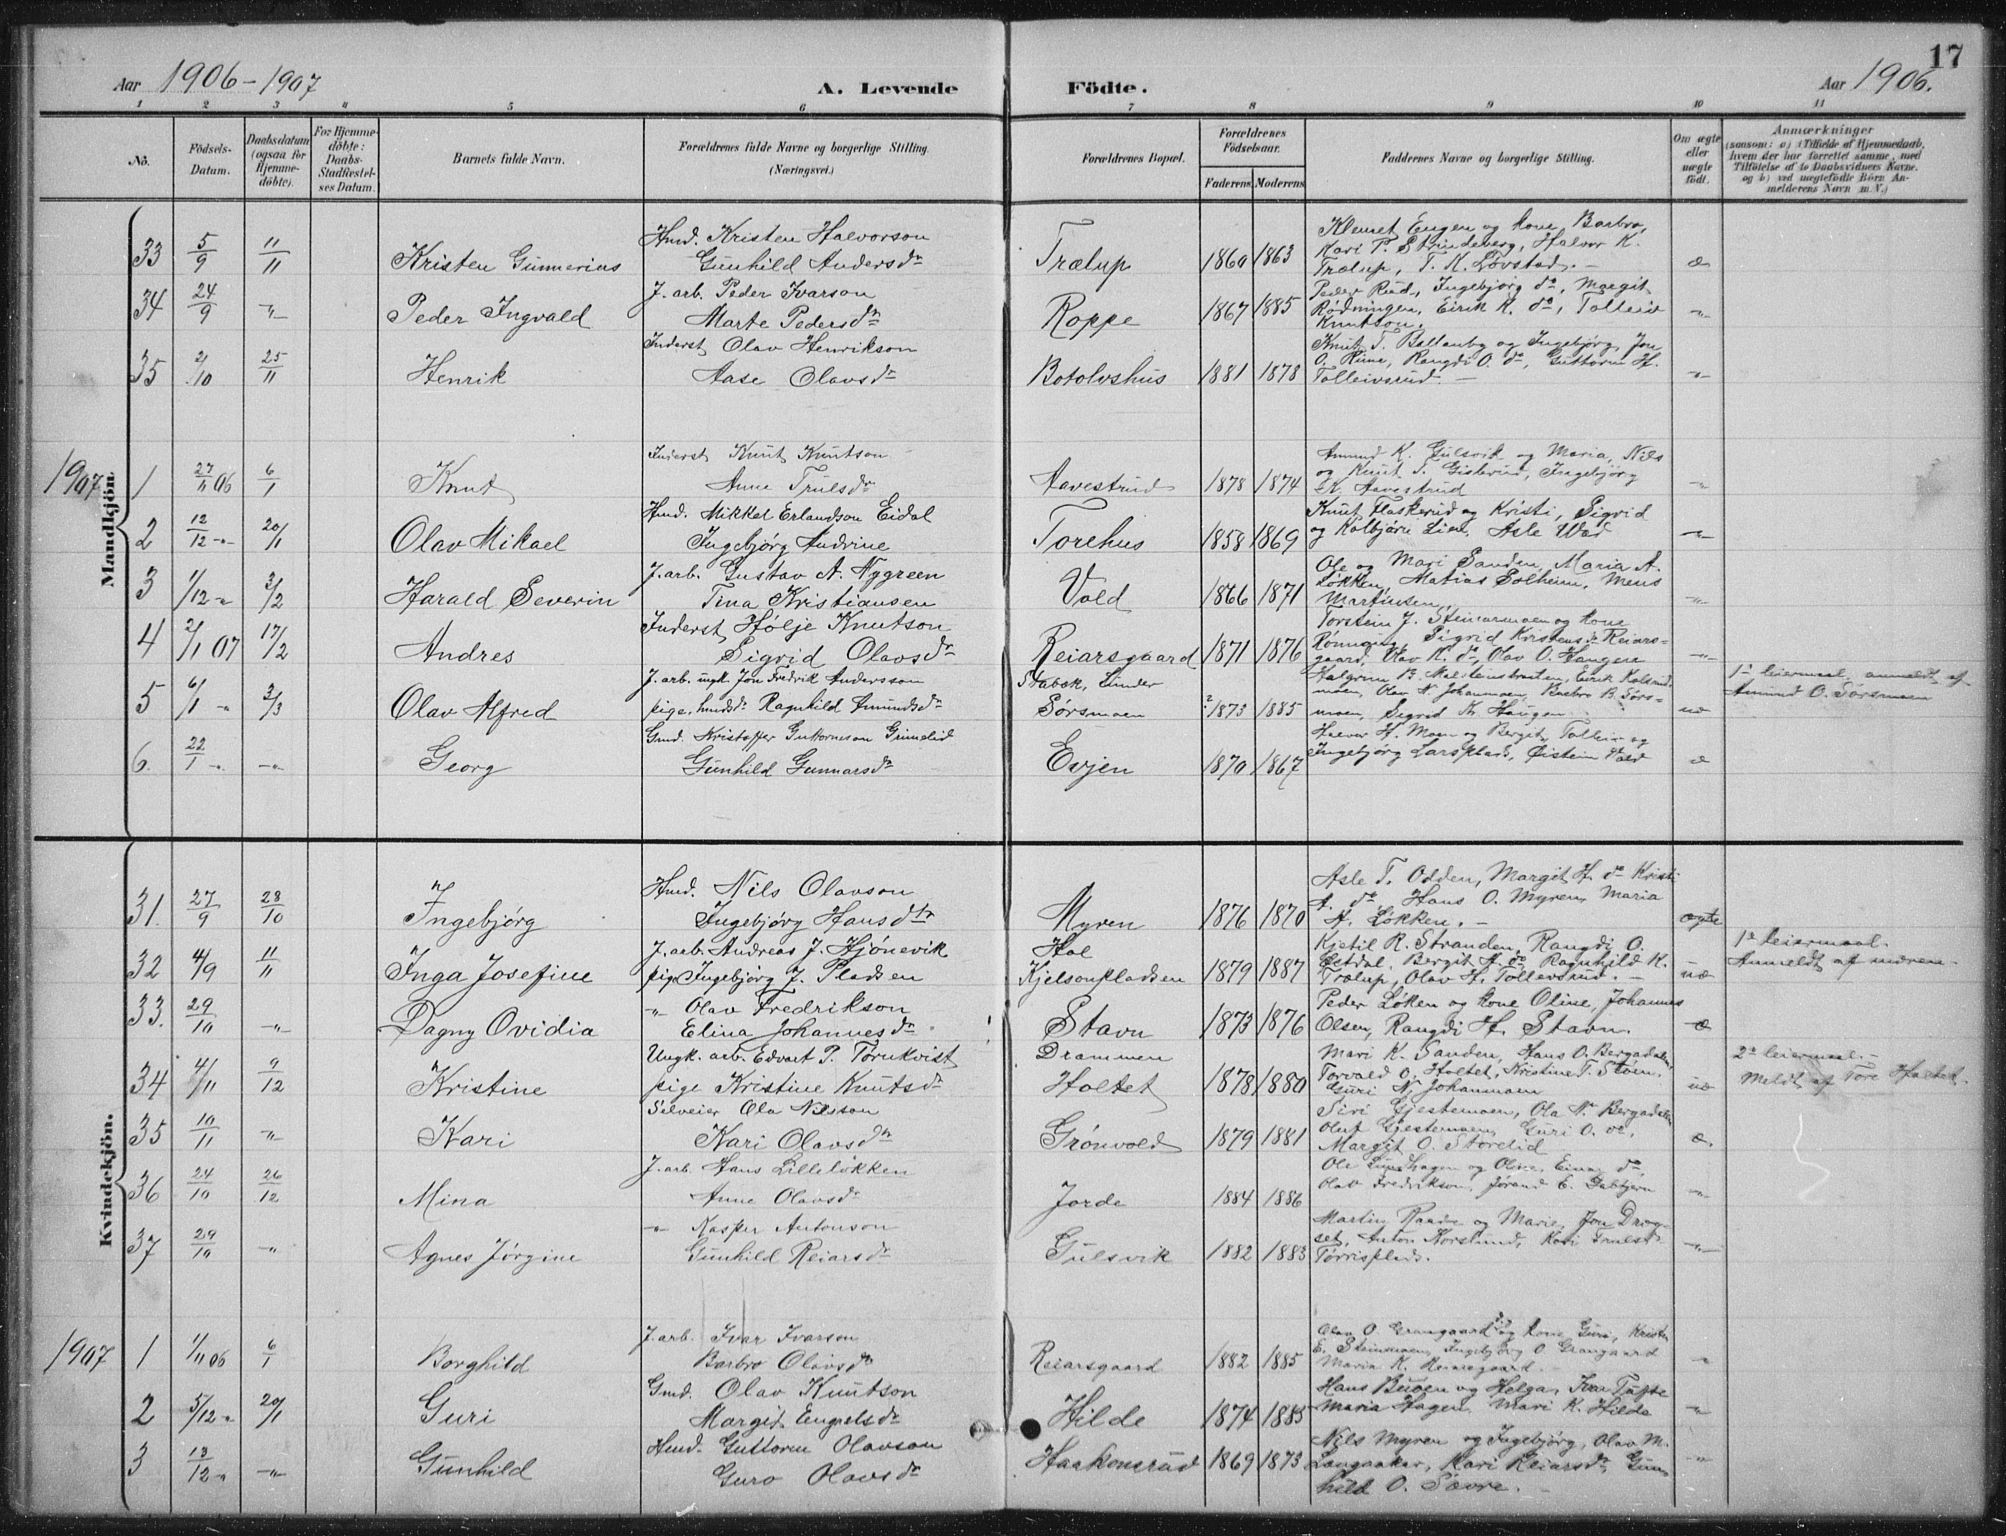 17
Aar 1906-1907 A. Levende Födte. Aar 1906.
1 2 3 4 5 6 7 8 9 10 11
No. Födsels-Datum. Daabsdatum (ogsaa for Hjemme-döbte). For Hjemme-döbte: Daabs-Stadfæstel-ses Datum. Barnets fulde Navn. Forældrenes fulde Navne og borgerlige Stilling. (Næringsvei.) Forældrenes Bopæl. Forældrenes Födselsaar. Faderens Moderens Faddernes Navne og borgerlige Stilling. Om ægte eller uægte födt. Anmærkninger (saasom: a) i Tilfælde af Hjemmedaab, hvem der har forrettet samme, med Tilföielse af to Daabsvidners Navne, og b) ved uægtefödte Börn An-melderens Navn m. V.)
Mandkjön.
33 5/9 11/11 Kristen Gunnerius Hmd. Kristen Halvorson
Gunhild Andersdr Trælup 1860 1863 Klemet Eugen og kone Barbro,
Kari P. Strindeberg, Halvor K.
Trælup, T. K. Lövstad. - æ
34 24/9 -"- Peder Ingvald J. arb. Peder Ivarson
Marte Pedersdr Roppe 1867 1885 Peder Rud, Ingebjørg do, Margit
Rødningen, Eirik K. do, Tolleiv
Knutson. -"-
35 2/10 25/11 Henrik Inderst Olav Henrikson
Aase Olavsdr Botolvshus 1881 1878 Knut T. Ballanby og Ingebjørg, Jon
O. Rime, Rangdi O. do, Guttorm H.
Tolleivsrud - -"-
1907
1 27/11 06 6/1 Knut Inderst Knut Knutson
Anne Trulsdr Aavestrud 1878 1874 Amund K. Gulsvik og Maria, Nils
og Knut T. Gisterud, Ingebjörg
K. Aavestrud -"-
2 12/12 -"- 20/1 Olav Mikael Hmd. Mikkel Erlandson Eidal
Ingebjørg Andrine Torehus 1858 1869 Knut Flaskerud og Kristi, Sigrid
og Kolbjørn Lien, Asle -"-
3 1/12 -"- 3/2 Harald Severin J. arb. Gustav A. Nygreen
Tina Kristiansen Vold 1866 1871 Ole og Mari Sanden, Maria A.
Løkken, Matias Solheim, Mens
Martinsen -"-
4 2/1 07 17/2 Andres Inderst Hølje Knutson
Sigrid Olavsdr Reiarsgaard 1871 1876 Torstein J. Steinarmoen og kone
Rønnaug, Sigrid Kristensdr Reiars-
gaard, Olav K. do, Olav O. Haugen -"-
5 6/1 -"- 3/3 Olav Alfred J. arb. ungk. Jon Fredrik Andersson
pige, hmdsdr Ragnhild Amundsdr Stabek, Lunder
Sörsmoen ? 1873 1885 Halgrim B. Eirik
moen, Olav N. Johanmoen, Barbro B. Sörs-
moen, Sigrid K. Haugen uæ 1ste leiermaal, anmeldt af
Amund O. Sørsmoen
6. 22/1 -"- -"- Georg Gmd. Kristoffer Guttormson Grimelid
Gunhild Gunnarsdr Evjen 1870 1867 Halvor H. Moen og Bergit, Tolleiv og
Ingebjörg Larsplads, Øistein Vold æ
Kvindekjön.
31. 27/9 28/10 Ingebjörg Hmd. Nils Olavson
Ingebjörg Hansdtr Myren 1876 1870 Asle T. Odden, Margit H. do Kristi
A. do Hans O. Myren, Maria
H. Løkken. - ægte
32 4/9 11/11 Inga Josefine J. arb. Andreas J. Hjönevik
pige Ingebjörg J. Pladsen Hol
Kjelsonpladsen 1879 1887 Kjetil R. Stranden, Rangdi O.
Bergit H. do Ragnhild K.
Trælup, Olav H. Tollevsrud. - uæ 1ste leiermaal.
Anmeldt af moren.
33. 29/10 -"- Dagny Ovidia -"- Olav Fredrikson
Elina Johannesdr Stavn 1873 1876 Peder Løken og kone Oline, Johannes
Olsen, Rangdi H. Stavn. æ
34 4/11 9/12 Kristine Ungk. arb. Edvart P. Törnkvist
pige Kristine Knutsdr Drammen
Holtet 1878 1880 Mari K. Sanden, Hans O. Bergadalen,
Torvald O. Holtet, Kristine T. Støen.
Guri N. Johanmoen uæ 2det leiermaal. -
Meldt af Tore Holtet.
35 10/11 -"- Kari Selveier Ola Nilsson
Kari Olavsdr Grönvold 1879 1881 Siri Gjestemoen, Ola N. Bergadalen
Olaf Gjestemoen, Guri O. do,
Margit O. Storelid æ
36 24/10 26/12 Mina J. arb. Hans Lilleløkken
Anne Olavsdr Jorde 1884 1886 Ole Lundhagen og Oline, Einar do,
Olav Fredrikson, Jørand E. Gubbjörn -"-
37 29/10 -"- Agnes Jörgine -"- Kasper Antonson
Gunhild Reiarsdr Gulsvik 1882 1883 Martin Raade og Marie, Jon Drog-
set, Anton Korslund, Kari Trulsdr
Törrisplads. -"-
1907
1 1/11 06 6/1 Borghild J. arb. Ivar Ivarson
Barbro Olavsdr Reiarsgaard 1882 1885 Olav O. Grangaard og kone Guri, Kristen
E. Steinmoen, Ingebjörg O Grangaard
Maria K. Reiarsgaard. -"-
2 5/12 -"- 20/1 Guri Gmd. Olav Knutson
Margit Engretsdr Hilde 1874 1885 Hans Buøen og Helga, Ivar Tufte
Maria Hagen Mari K. Hilde -"-
3 13/12 -"- -"- Gunhild Hmd. Guttorm Olavson
Guro Olavsdr Haakonsrud 1869 1873 Nils Myren og Ingebjörg, Olav M.
Langaaker, Kari Reiarsdr, Gun-
hild O. Sævre. -"-